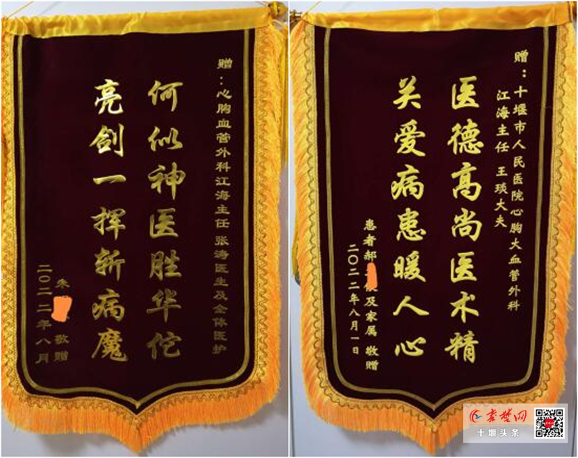 赠：心胸血管外科江海主任 张涛医生及全体医护
何似神医胜华佗
亮剑一挥斩病魔
朱
敬赠
二〇二二年八月
赠：十堰市人民医院心胸大血管外科
江海主任 王琰大夫
医德高尚医术精
关爱病患暖人心
患者郝 及家属 敬赠
二〇二二年八月一日
秦楚网
十堰头条